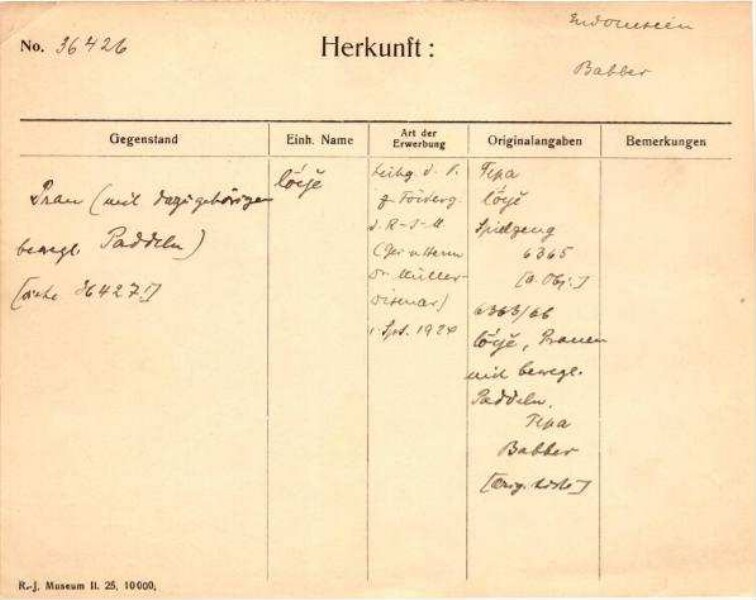 No. 36426
Herkunft :
Indonesien
Babber
Gegenstand
Einh. Name
Art der
Erwerbung
Originalangaben
Bemerkungen
Prau (mit dazugehörigen
bewegl. Paddeln)
[siehe 36427!]
lóije
Leihg. d. V.
z. Förderg.
d. R-J-M.
(Her
Dr. Müller-
Wismar)
1924
Tepa
lóije
Spielzeug
6365
[a. Obj.]
6365/66
lóije, Prauen
mit bewegl.
Paddeln.
Tepa
Babber
[Orig. Liste]
R.-J. Museum II. 25, 10000.